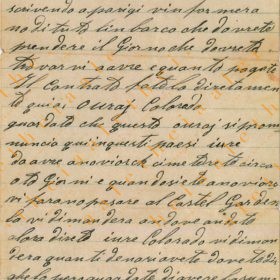 scrivendo a parigi vin formera
no di tuto l'inbarco che dovrete
prendere il Giorno che dovrete
trovarvi avre e quanto pagate
Il Contrato fatelo diretamen
te qui a Ouray Colorado
guardate che questo ouray si pronu
nuncia qui inquesti paesi iure
da avre a noviorck ci meterete circa
oto Giorni e quando siete a noviorck
vi farano pasare al Castel Garden
la vi dimandera andove andate
alora direte iure Colorado vi diman
dera quanti denari avete dove tocha